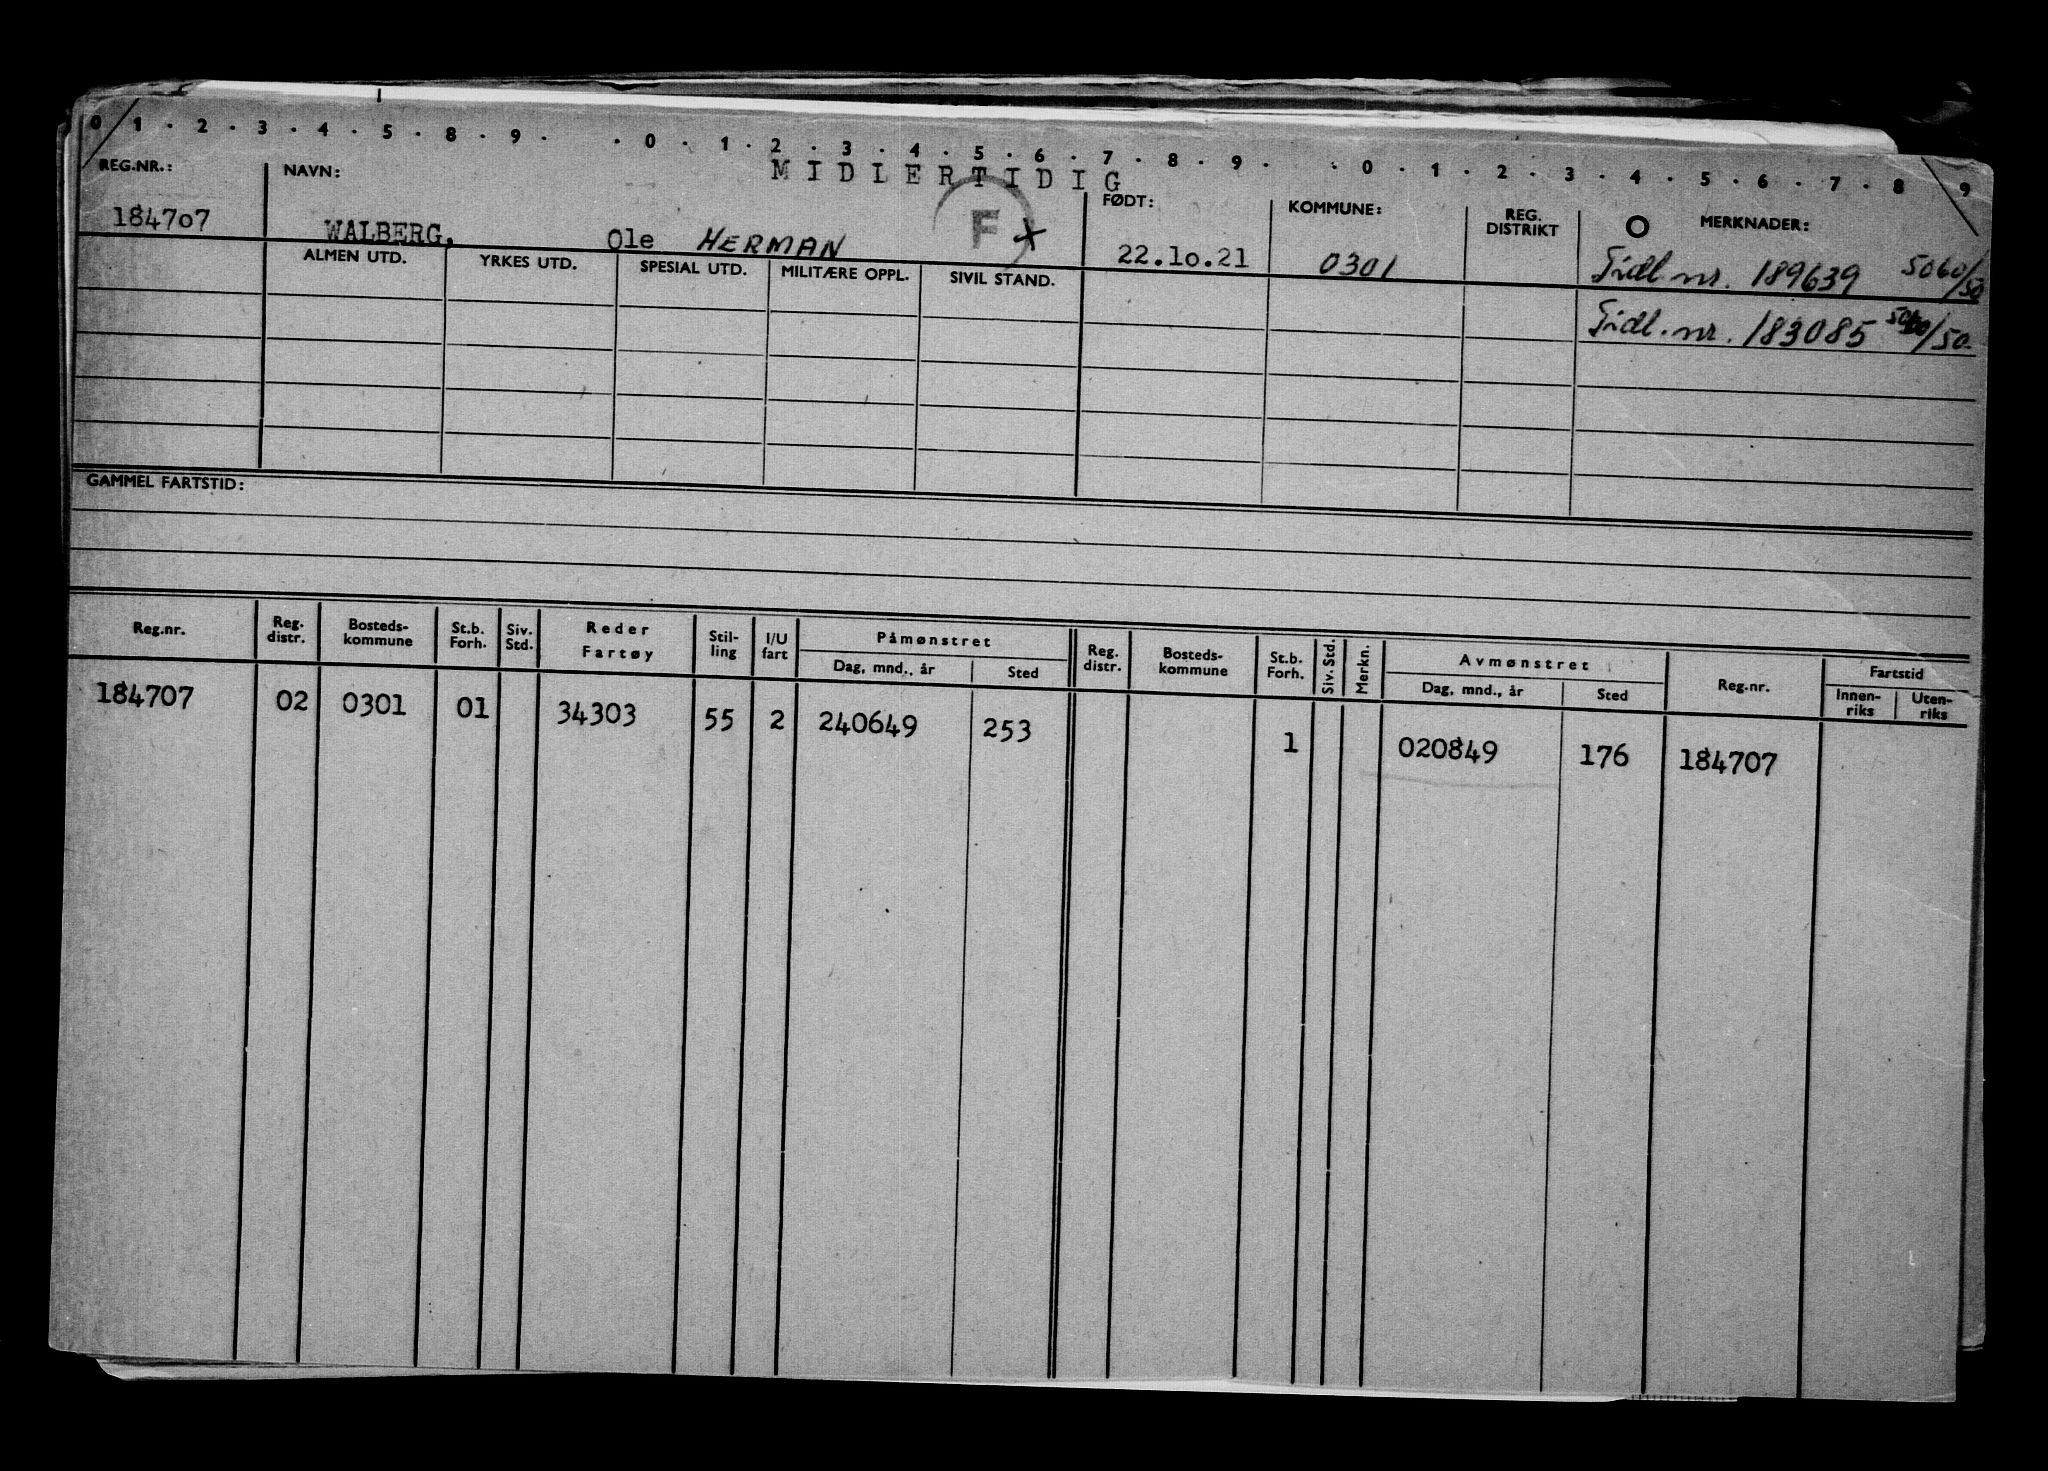 0 1 . 2 . 3 . 4 . 5 . 8 . 9 . . 0 . 1 . 2 . 3 . 4 . 5 . 6 . 7 . 8 . 9 . . 0 . 1 . 2 . 3 . 4 . 5 . 6 . 7 . 8 9
MIDLERTIDIG
REG.NR.: NAVN: FØDT: KOMMUNE: REG. DISTRIKT O MERKNADER:
184707 WALBERG, Ole HERMAN F x 22.10.21 0301 Tidl. nr. 189639 5060/50
ALMEN UTD. YRKES UTD. SPESIAL UTD. MILITÆRE OPPL. SIVIL STAND.
Tidl. nr. 183085 5060/50.
GAMMEL FARTSTID:
Reg.nr. Reg. distr. Bosteds-kommune St.b. Forh. Siv. Std. Reder Fartøy Stil-ling I/U fart Påmønstret Dag, mnd., år Sted Reg. distr. Bosteds-kommune St.b. Forh. Siv. Std. Merkn. Avmønstret Dag, mnd., år Sted Reg.nr. Fartstid Innen-riks Uten-riks
184707 02 0301 01 34303 55 2 240649 253 1 020849 176 184707